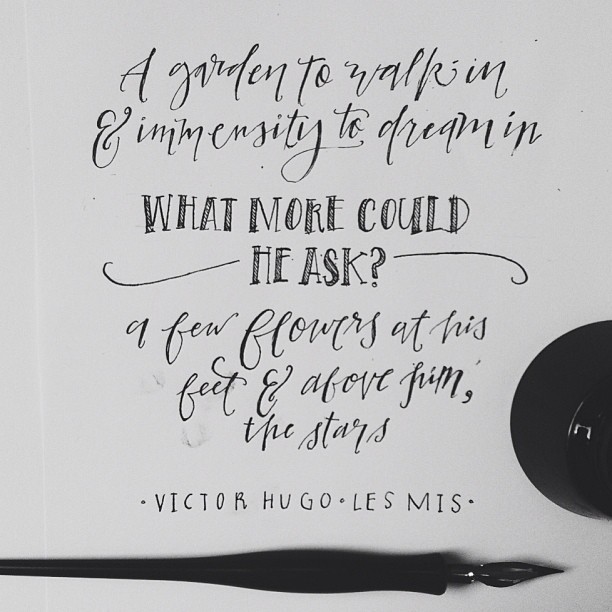 A garden to walk in
& immensity to dream in
WHAT MORE COULD
HE ASK?
a few flowers at his
feet & above him,
the stars
·VICTOR HUGO·LES MIS·